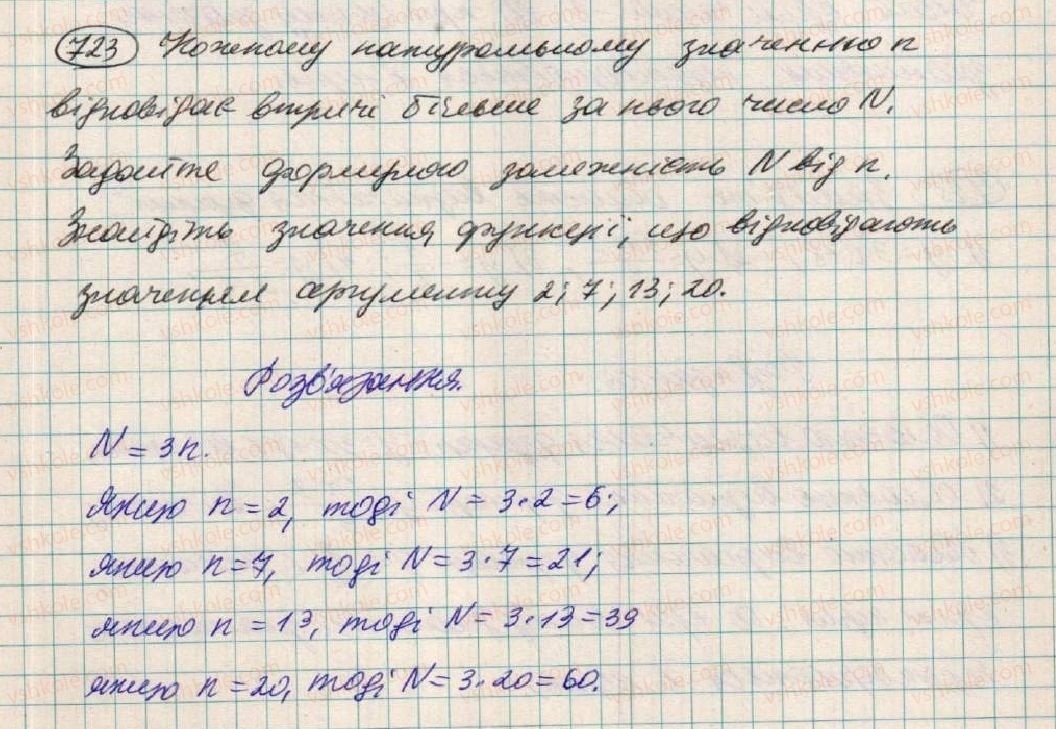 723 Кожному натуральному значенню n
відповідає втричі більше за нього число N.
Задайте формулою залежність N від n.
Знайдіть значення функції, що відповідають
значенням аргументу 2; 7; 13; 20.
Розв'язання.
N = 3n.
Якщо n = 2, тоді N = 3·2 = 6;
якщо n = 7, тоді N = 3·7 = 21;
якщо n = 13, тоді N = 3·13 = 39
якщо n = 20, тоді N = 3·20 = 60.